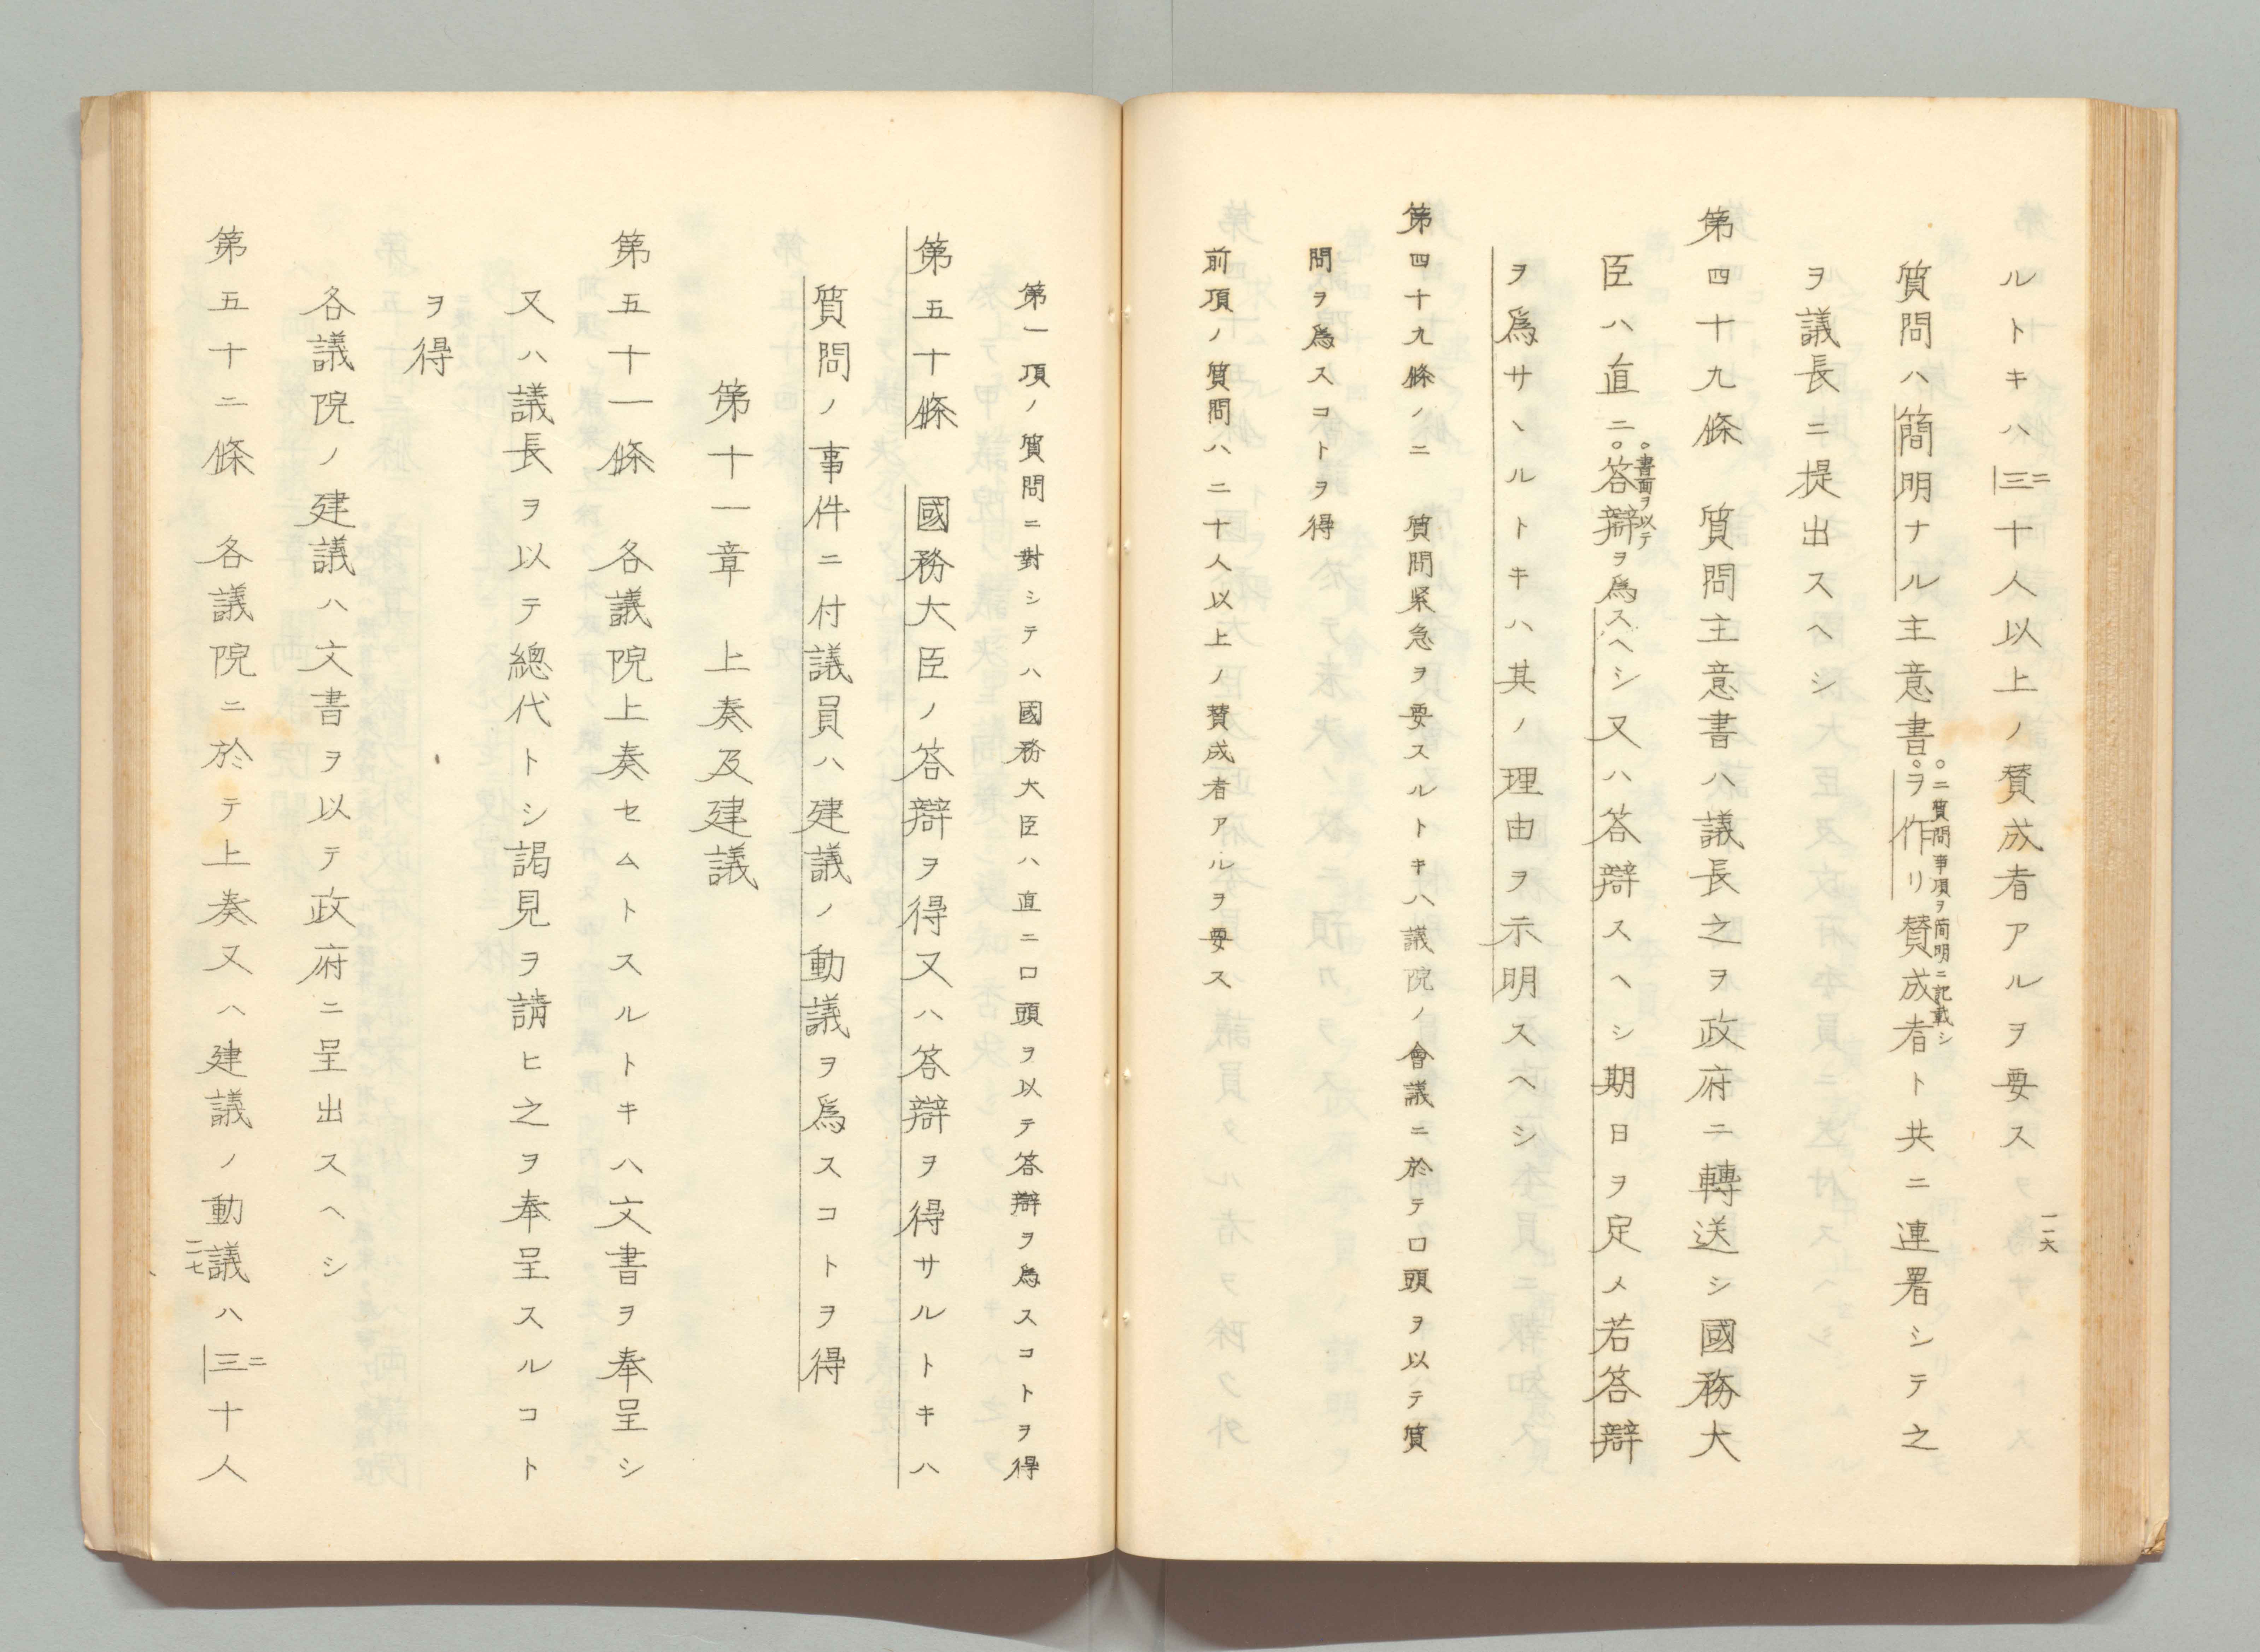 ルトキハ三十人以上ノ賛成者アルヲ要ス
二
質問ハ簡明ナル主意書。ヲ作リ賛成者ト共ニ連署シテ之
。ニ質問事項ヲ簡明ニ記載シ
ヲ議長ニ提出スヘシ
第四十九條 質問主意書ハ議長之ヲ政府ニ轉送シ國務大
臣ハ直ニ。答辯ヲ爲スヘシ又ハ答辯スヘシ期日ヲ定メ若答辯
。書面ヲ以テ
ヲ爲サヽルトキハ其ノ理由ヲ示明スヘシ
第四十九條ノ二 質問緊急ヲ要スルトキハ議院ノ會議ニ於テ口頭ヲ以テ質
問ヲ爲スコトヲ得
前項ノ質問ハ二十人以上ノ賛成者アルヲ要ス
二六
第一項ノ質問ニ對シテハ國務大臣ハ直ニ口頭ヲ以テ答辯ヲ爲スコトヲ得
第五十條 國務大臣ノ答辯ヲ得又ハ答辯ヲ得サルトキハ
質問ノ事件ニ付議員ハ建議ノ動議ヲ爲スコトヲ得
第十一章 上奏及建議
第五十一條 各議院上奏セムトスルトキハ文書ヲ奉呈シ
又ハ議長ヲ以テ總代トシ謁見ヲ請ヒ之ヲ奉呈スルコト
ヲ得
各議院ノ建議ハ文書ヲ以テ政府ニ呈出スヘシ
第五十二條 各議院ニ於テ上奏又ハ建議ノ動議ハ三十人
二
二七